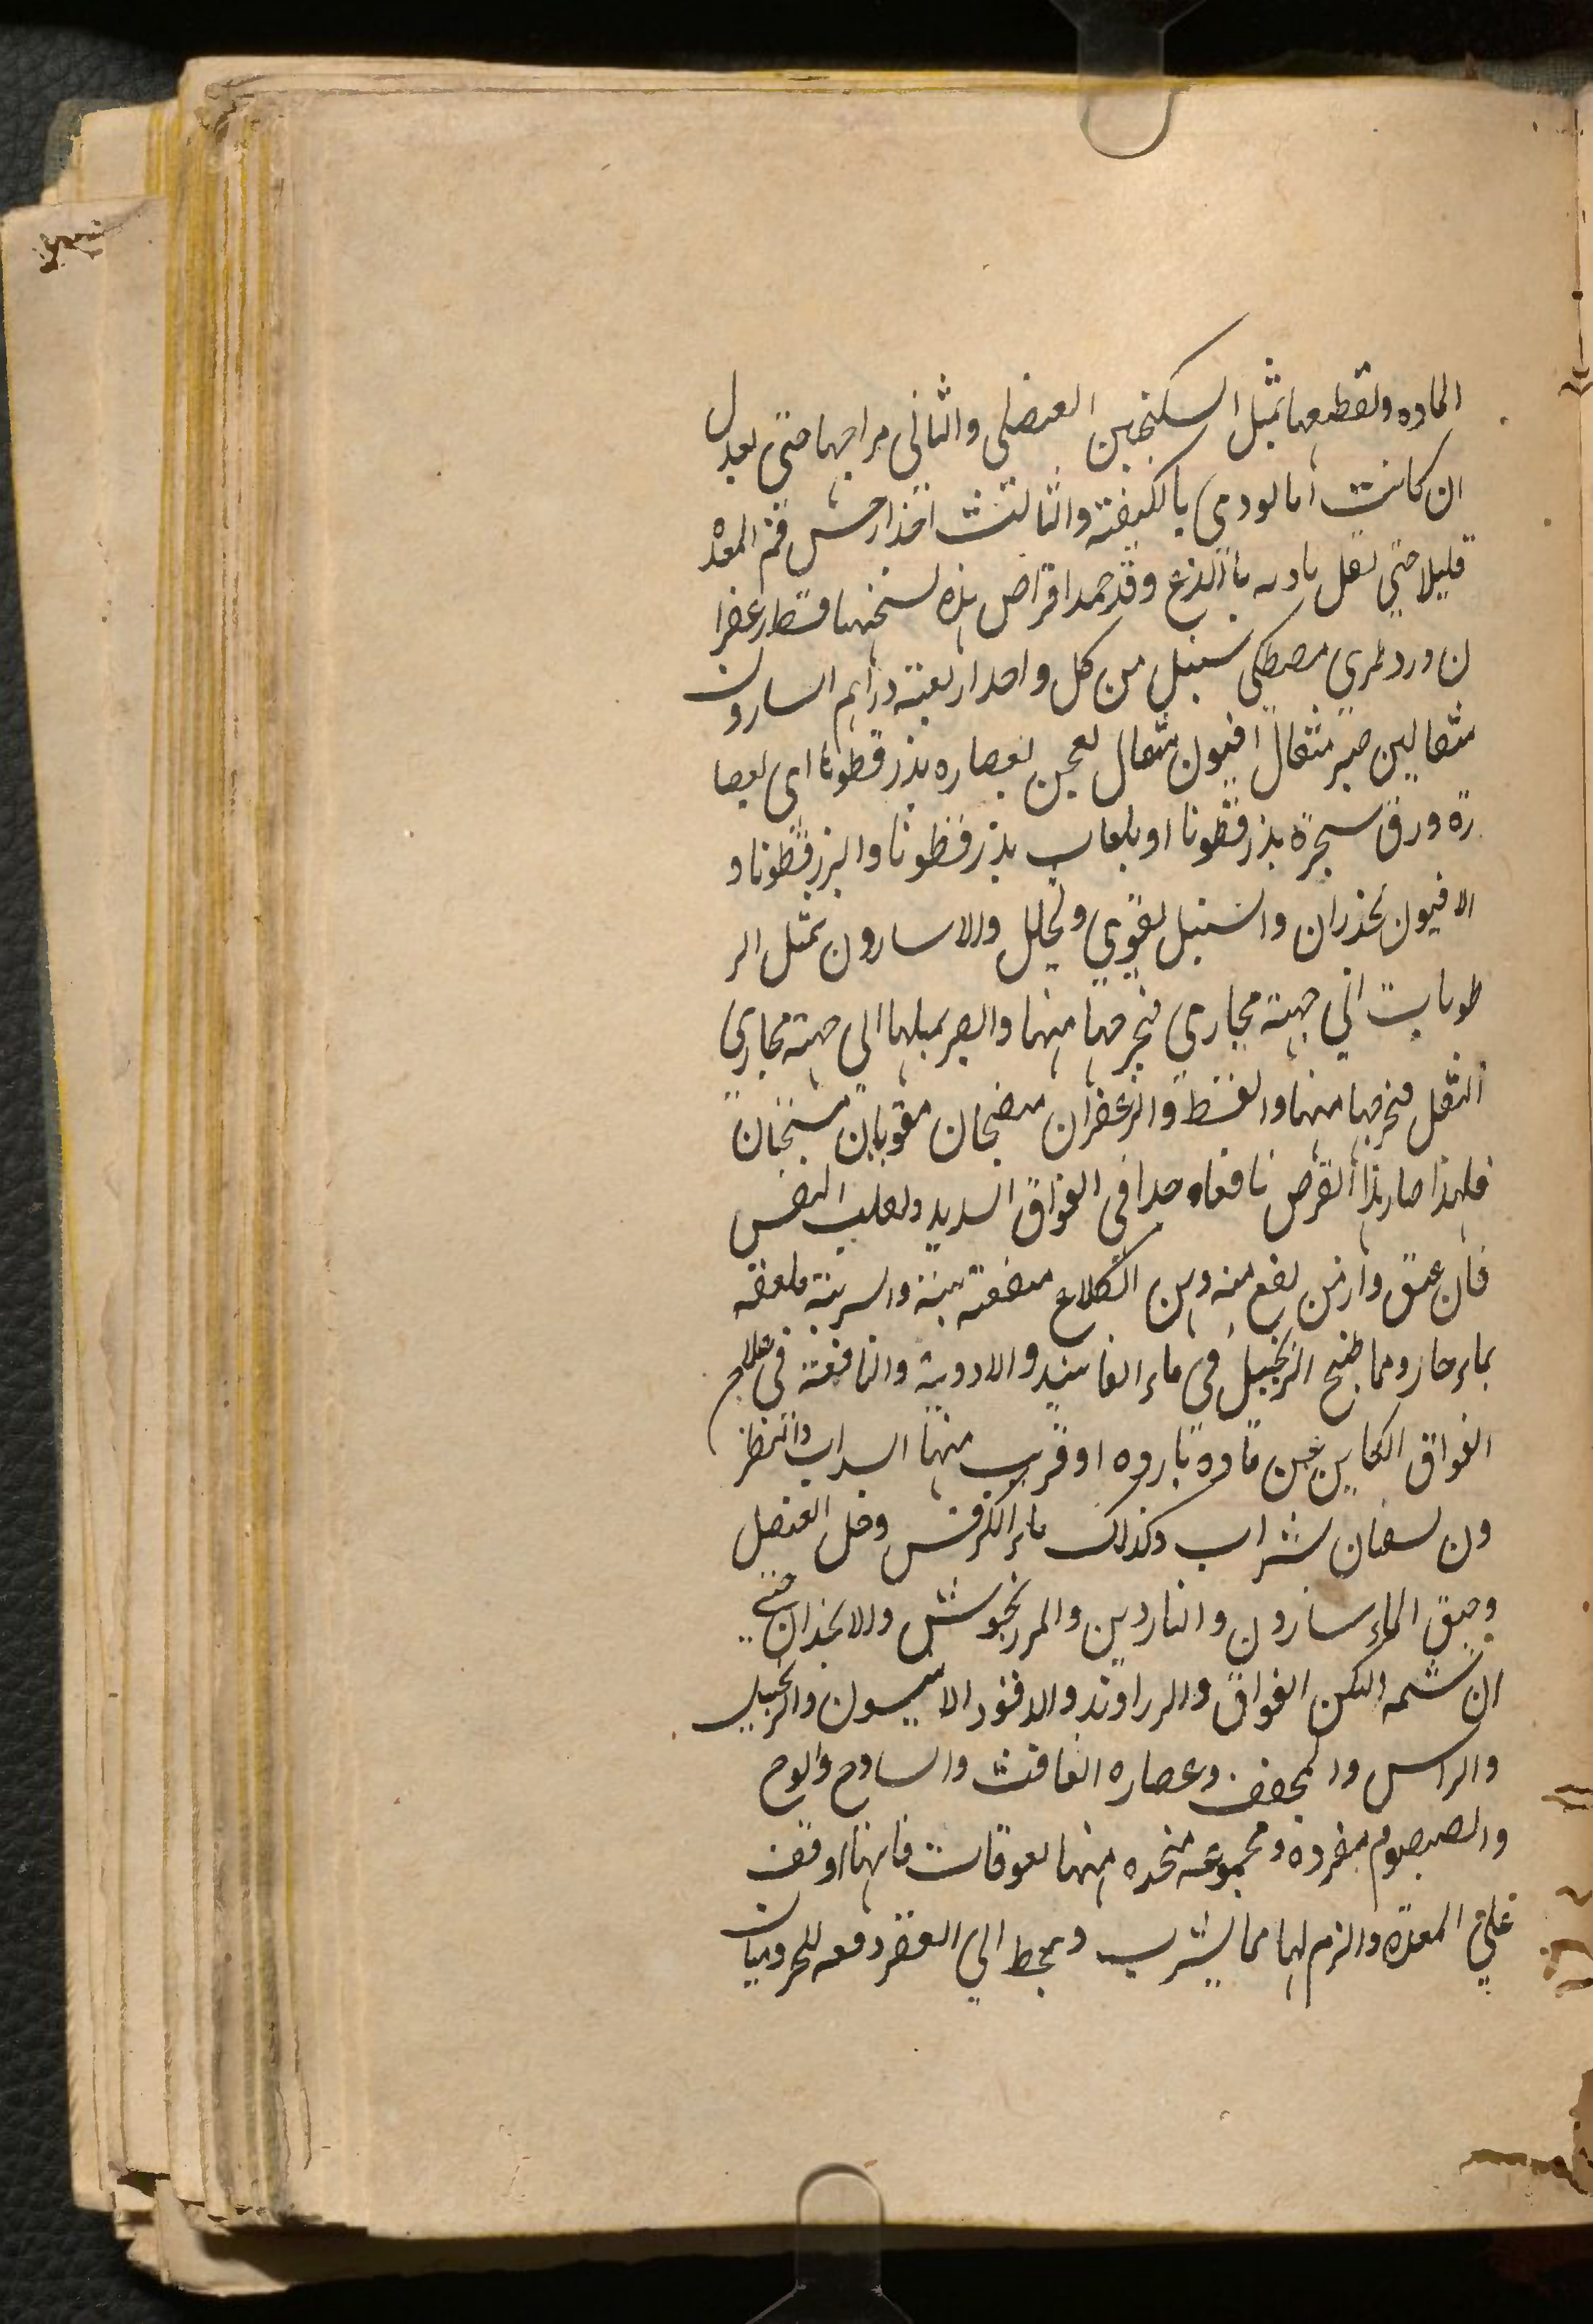 الماده وتقطيعها بمثل السكنجبين العنصلي والثاني مزاجها حتى يعدل
ان كانت انما تودي بالكيفته والثالث اخذار حس فم المعده
قليلا حتى تقل تاديه بااللذع وقد حمد اقراص بذه نسختها قسط زعفرا
ن ورد طري مصطكي سنبل من كل واحد اربعته دراهم اسارون
مثقالين صبر مثقال افيون مثقال يعجن بعصاره بذر قطونا اي بعصا
رة ورق سجرة بذر قطونا او بلعاب بذر قطونا والبزر قطونا و
الافيون يخذران والسنبل يقوي ويحلل والاسارون يمثل الر
طوبات الي جهته مجاري فيخرجها منها والصبر يميلها الى جهته مجاري
الثفل فيخرجها منها والقسط والزعفران منضجان مقويان مسخنان
فلهذا صار بذا القرص نافعاه جدا في الفواق الشديد وتقلب النفس
فان عتق وازمن نفع منه دهن الكلاع منفعته بينة والسربة ملعقه
بماء حار ومما طبخ الزنجبيل في ماء الفانيد والادوية والنافعة في علاج
الفواق الكاين عن مادة بارده او قريب منها السداب والنطر
ون يسقان بشراب وكذلك ماء الكرفس وخل العنصل
وحبق الماء سارون والناردين والمرزنجوش والانجذان حتى
ان شمه يسكن الفواق والزراوند والدوقو والانيسون والزنجبيل
والراسن والمجفف وعصاره الغافث والساذج والوج
والصيصوم مفرده ومجموعه متخذه منها لعوقات فانها اوقف
علي المعده والزم لها مما يشرب ويحط الي القعر دفعه للجريان